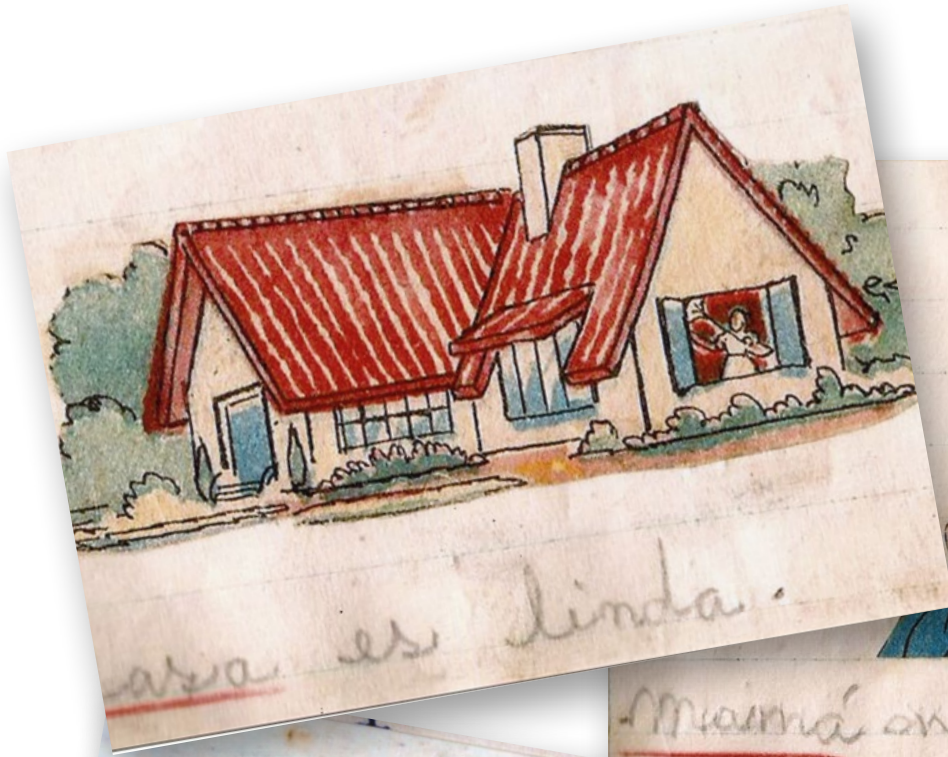 asa es linda.
Mamá